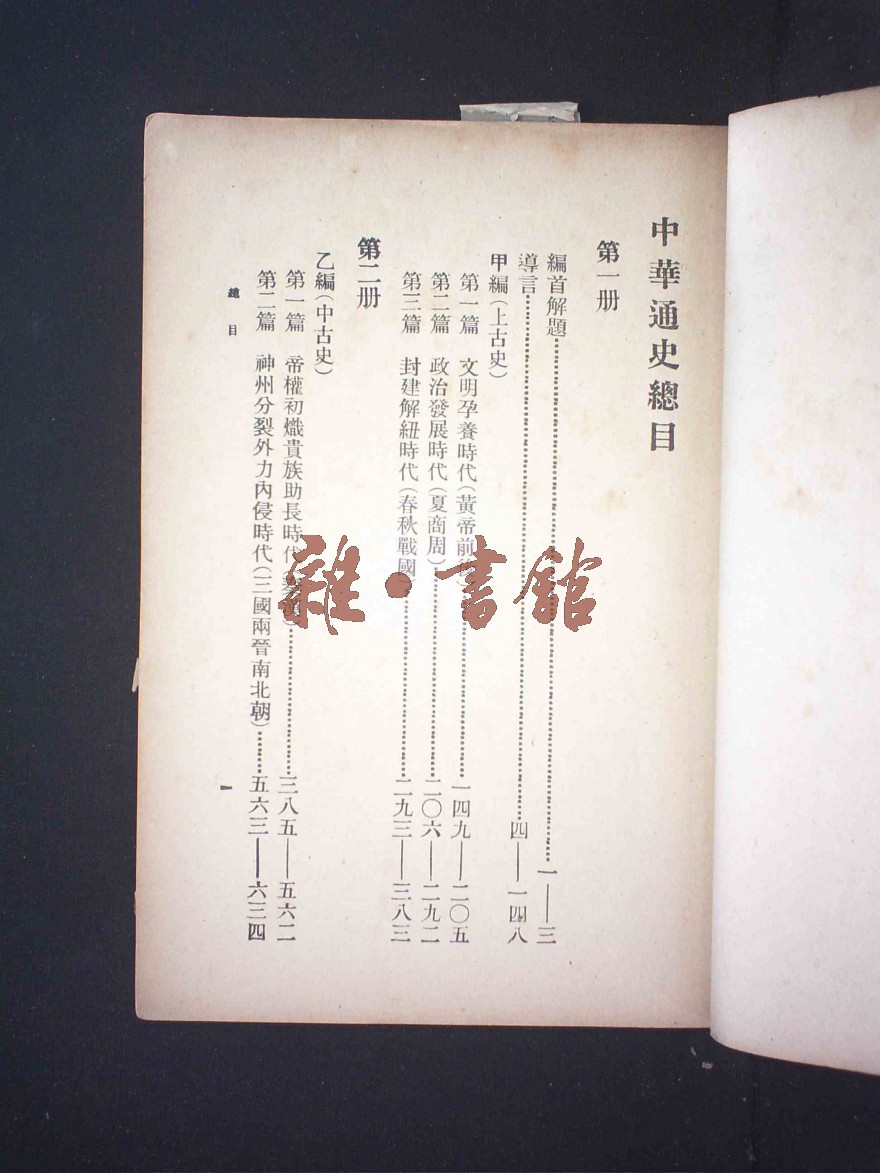 中華通史總目
第一册
編首解題……一——三
導言……四——一四八
甲編(上古史)
第一篇 文明孕養時代(黃帝前後)……一四九——二〇五
第二篇 政治發展時代(夏商周)……二〇六——二九二
第三篇 封建解紐時代(春秋戰國)……二九三——三八三
第二册
乙編(中古史)
第一篇 帝權初熾貴族助長時代(秦漢)……三八五——五六二
第二篇 神州分裂外力內侵時代(三國兩晉南北朝)……五六三——六三四
總目
一
雜·書館